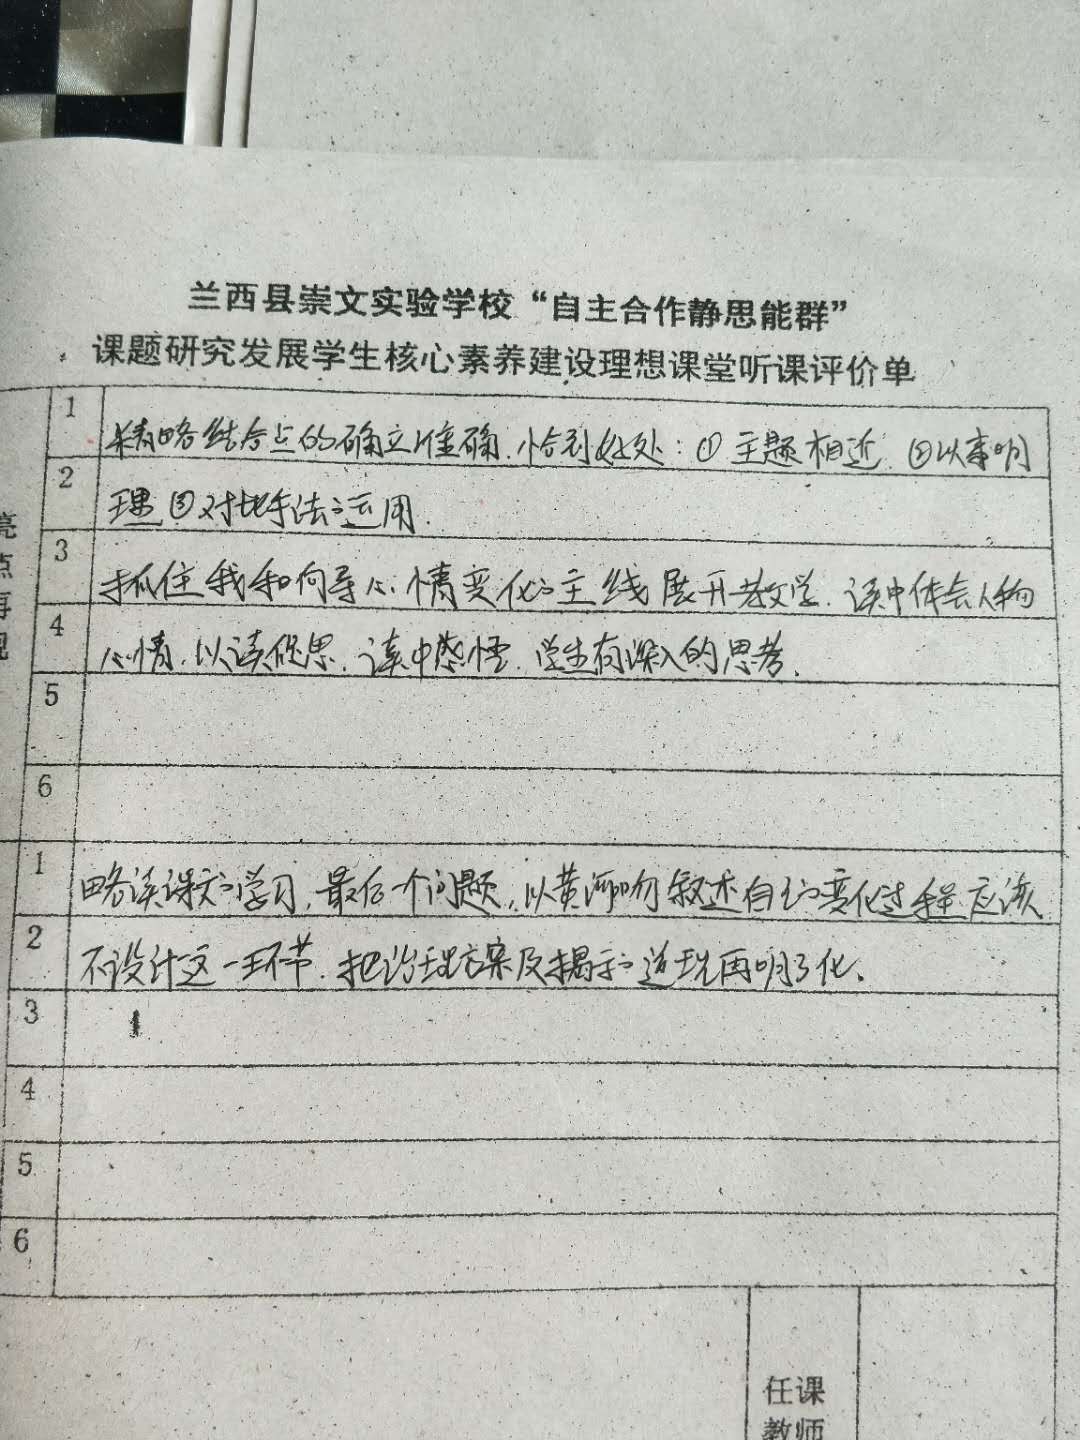 兰西县崇文实验学校“自主合作静思能群”
课题研究发展学生核心素养建设理想课堂听课评价单
亮点再现
1 精略结合点的确立准确.恰到好处：①主题相近.②以事明
2 理③对比手法的运用.
3 抓住我和向导心情变化的主线展开教学.读中体会人物
4 心情.以读促思.读中感悟.学生有深入的思考.
5
6
1 略读课文的学习,最后一个问题,以黄河的吻叙述自己的变化过程应该
2 不设计这一环节.把治理方案及揭示的道理再明了化.
3
4
5
6
任课
教师